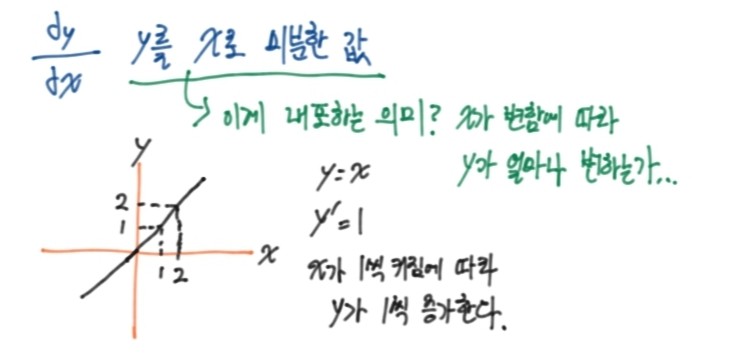 dy/dx y를 x로 미분한 값
이게 내포하는 의미? x가 변함에 따라
y가 얼마나 변하는가...
y
2
1
1 2
x
y=x
y'=1
x가 1씩 커짐에 따라
y가 1씩 증가한다.